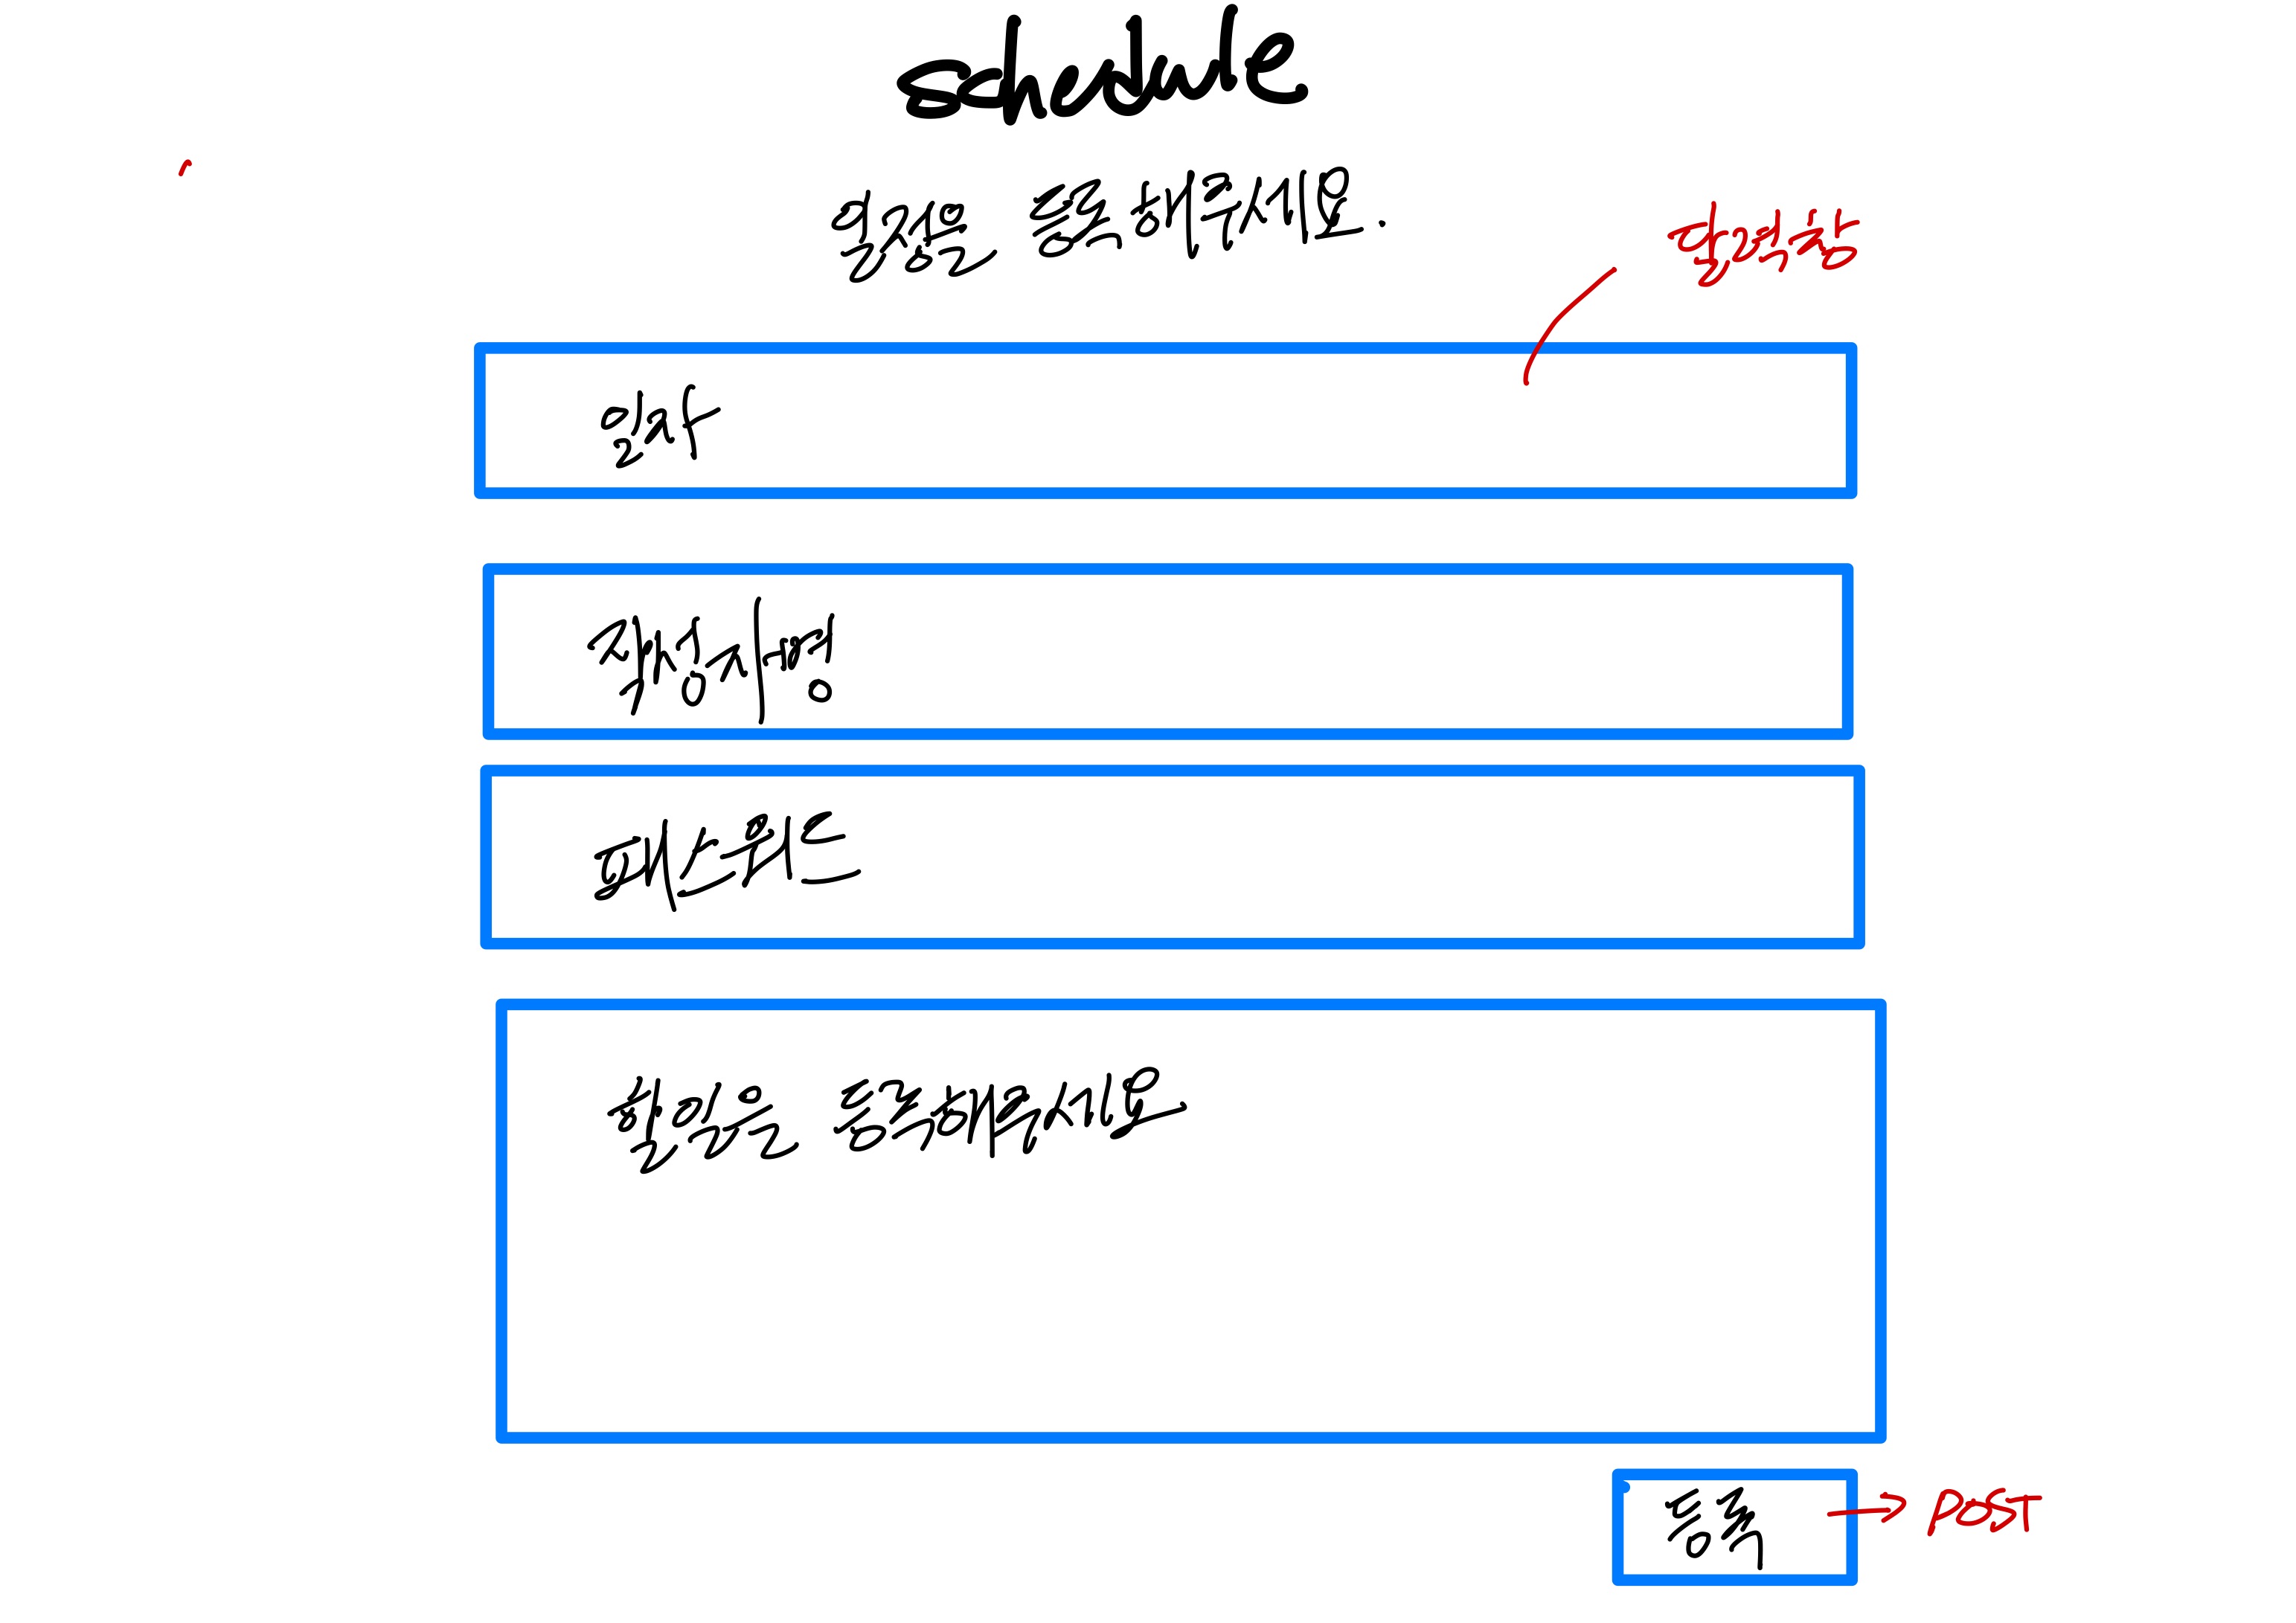 schedule
일정을 등록해주세요.
입력창
일자
작성자명
패스워드
할일을 등록해주세요
등록
POST